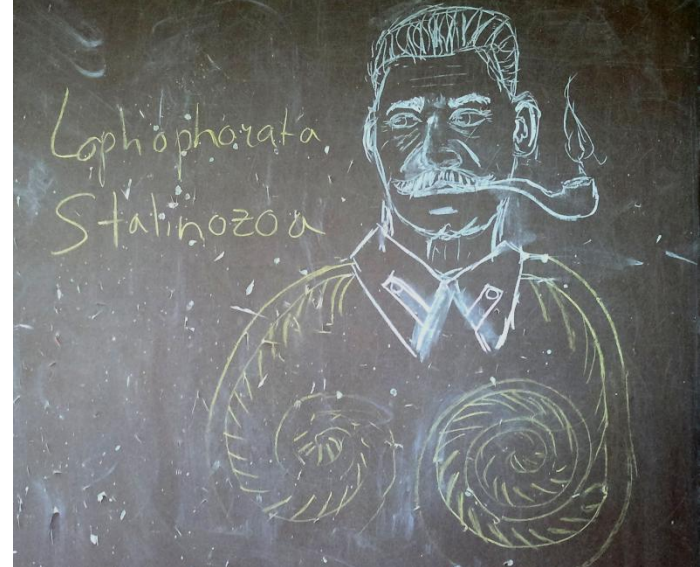 Lophophorata
Stalinozoa